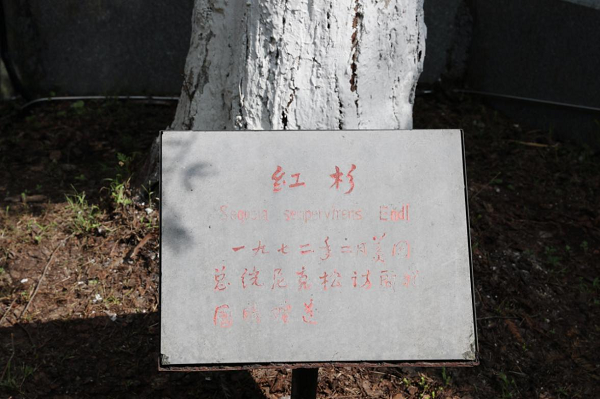 红杉
Sequoia sempervirens Endl
一九七二年二月美国
总统尼克松访问我
国时赠送